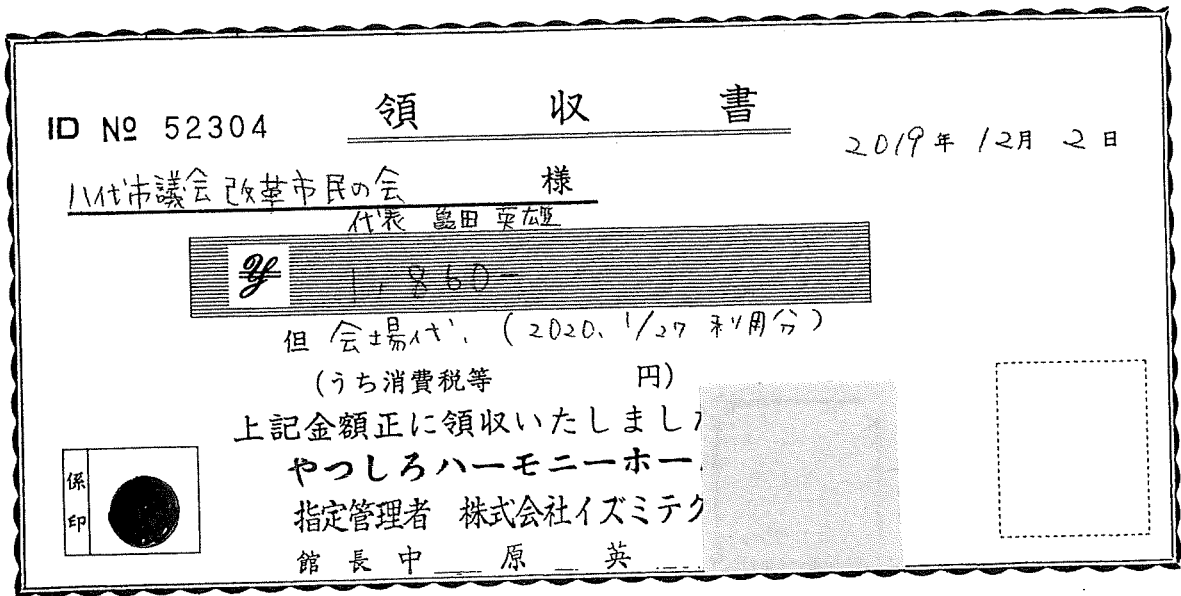 領 収 書
ID № 52304
2019年 12月 2日
八代市議会 改革市民の会 様
代表 亀田 英雄
¥ 1,860-
但 会場代、(2020、1/27 利用分)
(うち消費税等 円)
上記金額正に領収いたしまし
やつしろハーモニーホー
指定管理者 株式会社イズミテク
館 長 中 原 英
係印